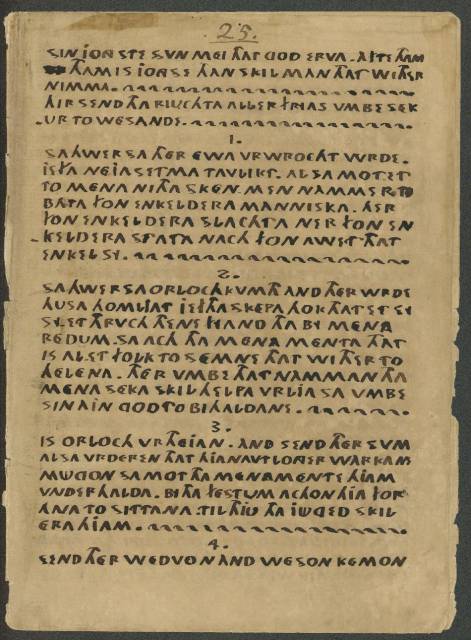 25.
SIN IONGSTE SVN MEI THAT GOD ERVA. AFTE THAM
THAM IS IONGSE HAN SKIL MAN THAT WITHER
NIMMA.
HIR SEND THA RIUCHTA ALLER FRIAS VMBE SEK
UR TO WESANDE.
1.
SAHWERSA THER EWA VRWROCHT WRDE.
IEFTA NEIA SETMA TAVLIKT. ALSA MOTET
TO MENA NITHA SKEN. MEN NAMMER TO
BATA FON ENKELDERA MANNISKA. HER
FON ENKELDERA SLACHTA NER FON EN
KELDERA STATA NACH FON AWET THAT
ENKEL SY.
2.
SAHWERSA ORLOCH KVMTH AND THER WRDE
HUSA HOMLIAT IEFTHA SKEPA HOK THAT ET SY
SY ET THRUCH THENE FIAND THA BY MENA
REDUM. SA ACH THA MENA MENTA THAT
IS AL ET FOLK TO SEMNE THAT WITHER TO
HELENA. THER UMBE THAT NAMMAN THA
MENA SEKA SKIL HELPA VRLIASA VMBE
SIN AIN GOD TO BIHALDANE.
3.
IS ORLOCH VRTHEIAN. AND SEND THER SVM
ALSA VRDEREN THAT HIA NAVT LONGER WARKA NE
MÜGON SA MOT THA MENA MENTE HIAM
VNDERHALDA. BI THA FESTUM ACHON HIA FOR
ANA TO SITTANA. TIL THIU THA IÜGED SKIL
ERA HIAM.
4.
SEND THER WEDVON AND WESON KEMON